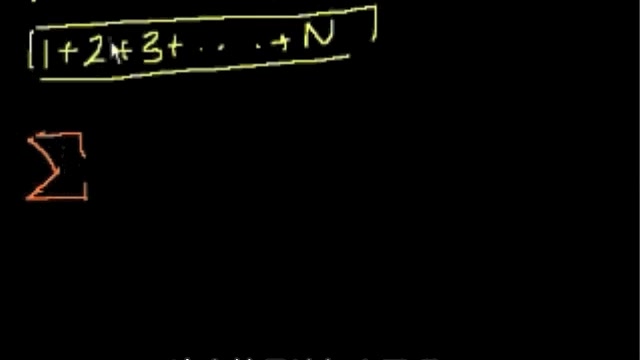 1+2+3+ . . . . + N
Σ